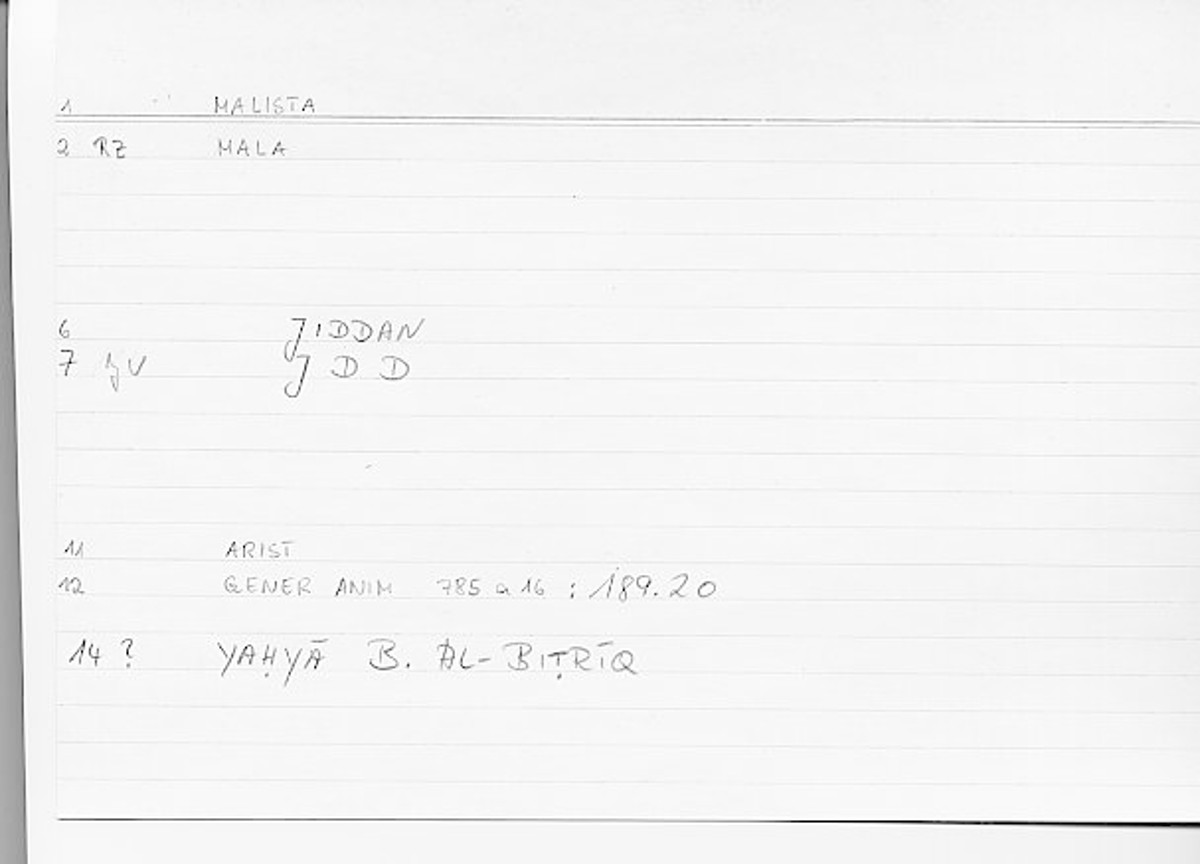 1 MALISTA
2 RZ MALA
6 JIDDAN
7 V J D D
11 ARIST
12 GENER ANIM 785 a 16 : 189.20
14 ? YAḤYĀ B. AL-BIṬRĪQ